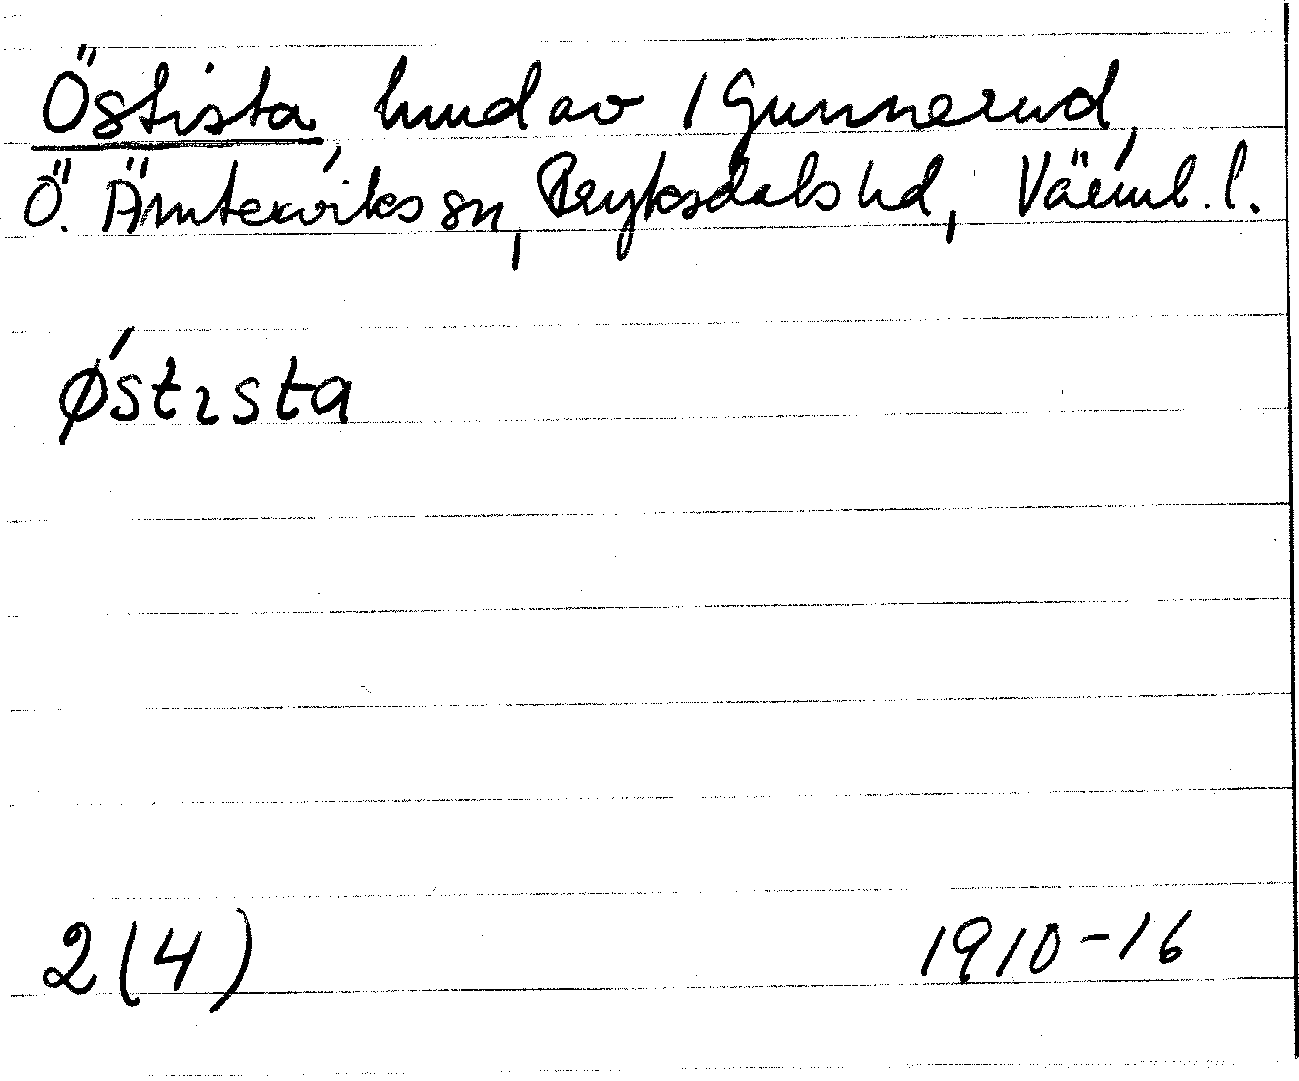 Östista, hmd av 1 Gunnerud,
Ö. Ämterviks sn, Fryksdals hd, Värml. l.
Ǿstɩsta
2(4) 1910-16